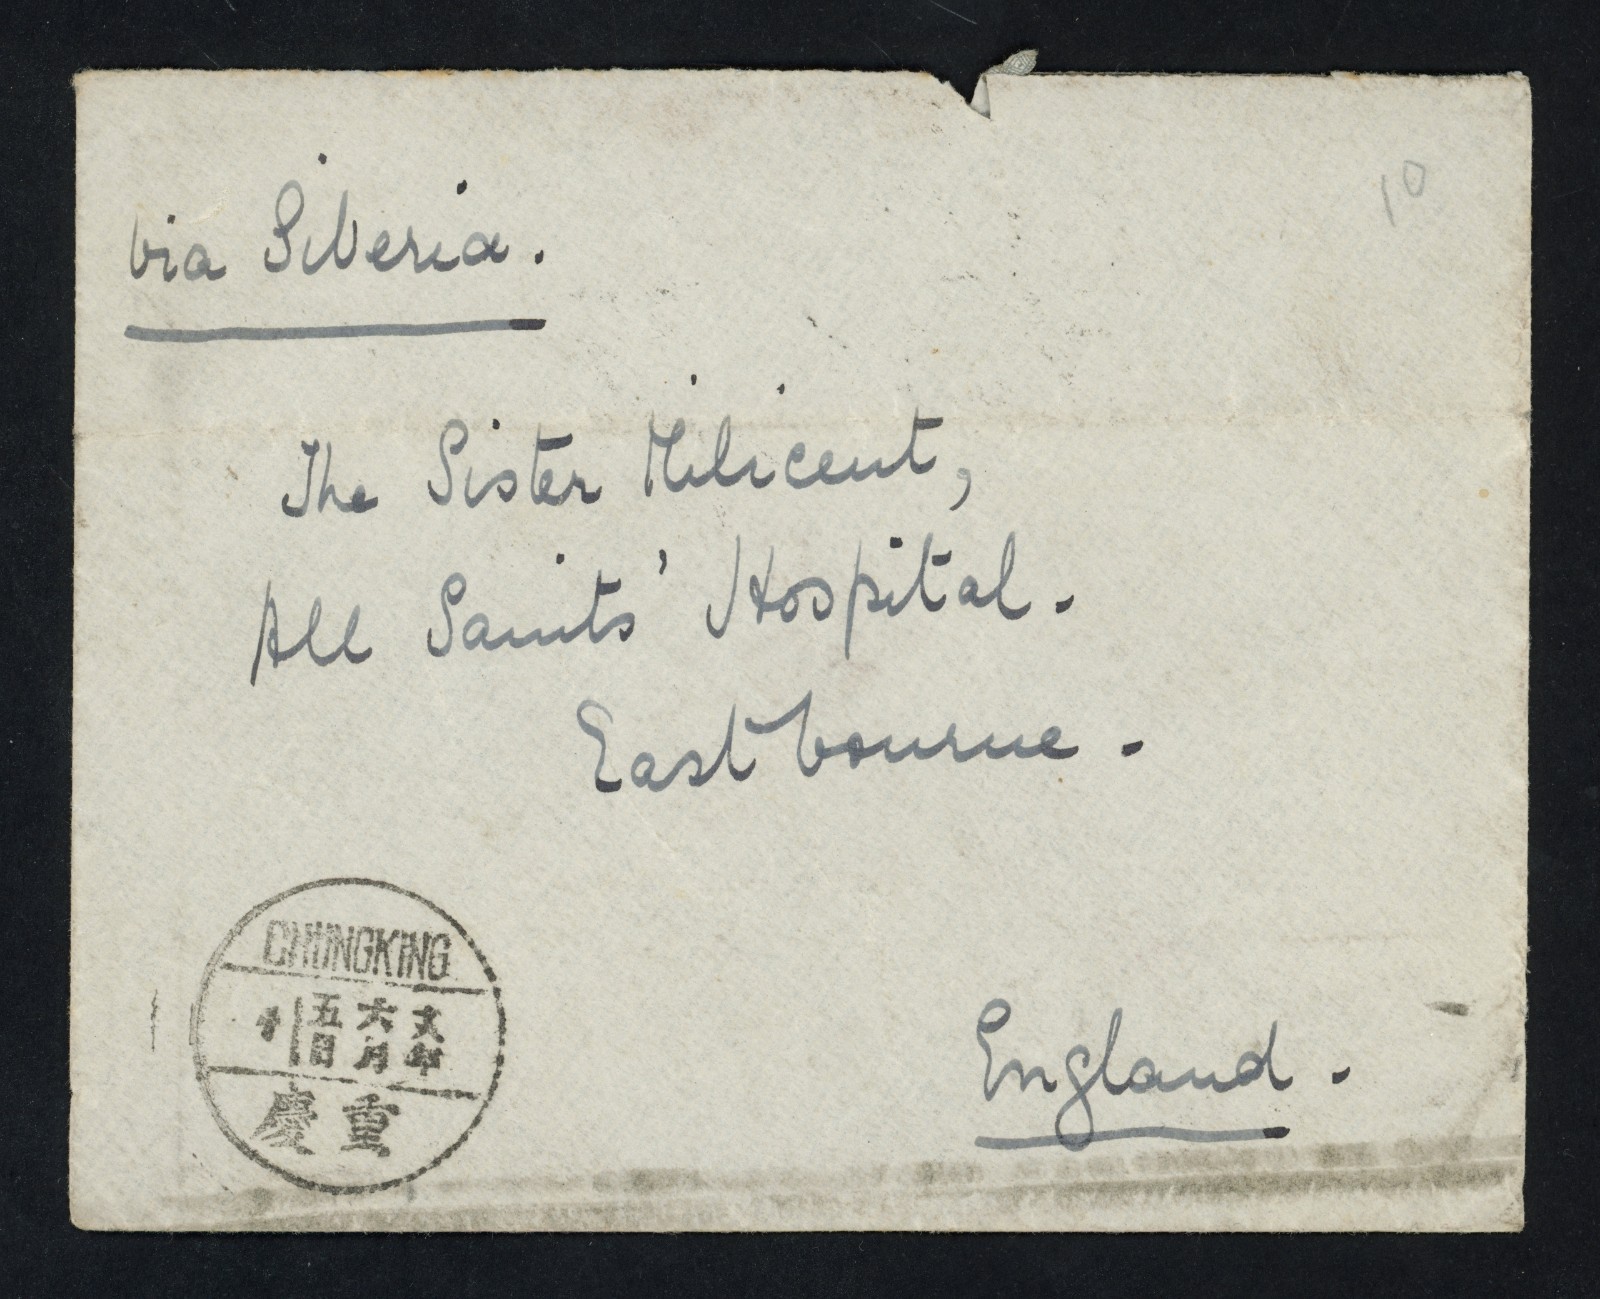 10
via Siberia.
The Sister Milicent,
All Saints' Hospital.
Eastbourne.
England.
CHUNGKING
五日 六月 年
重慶